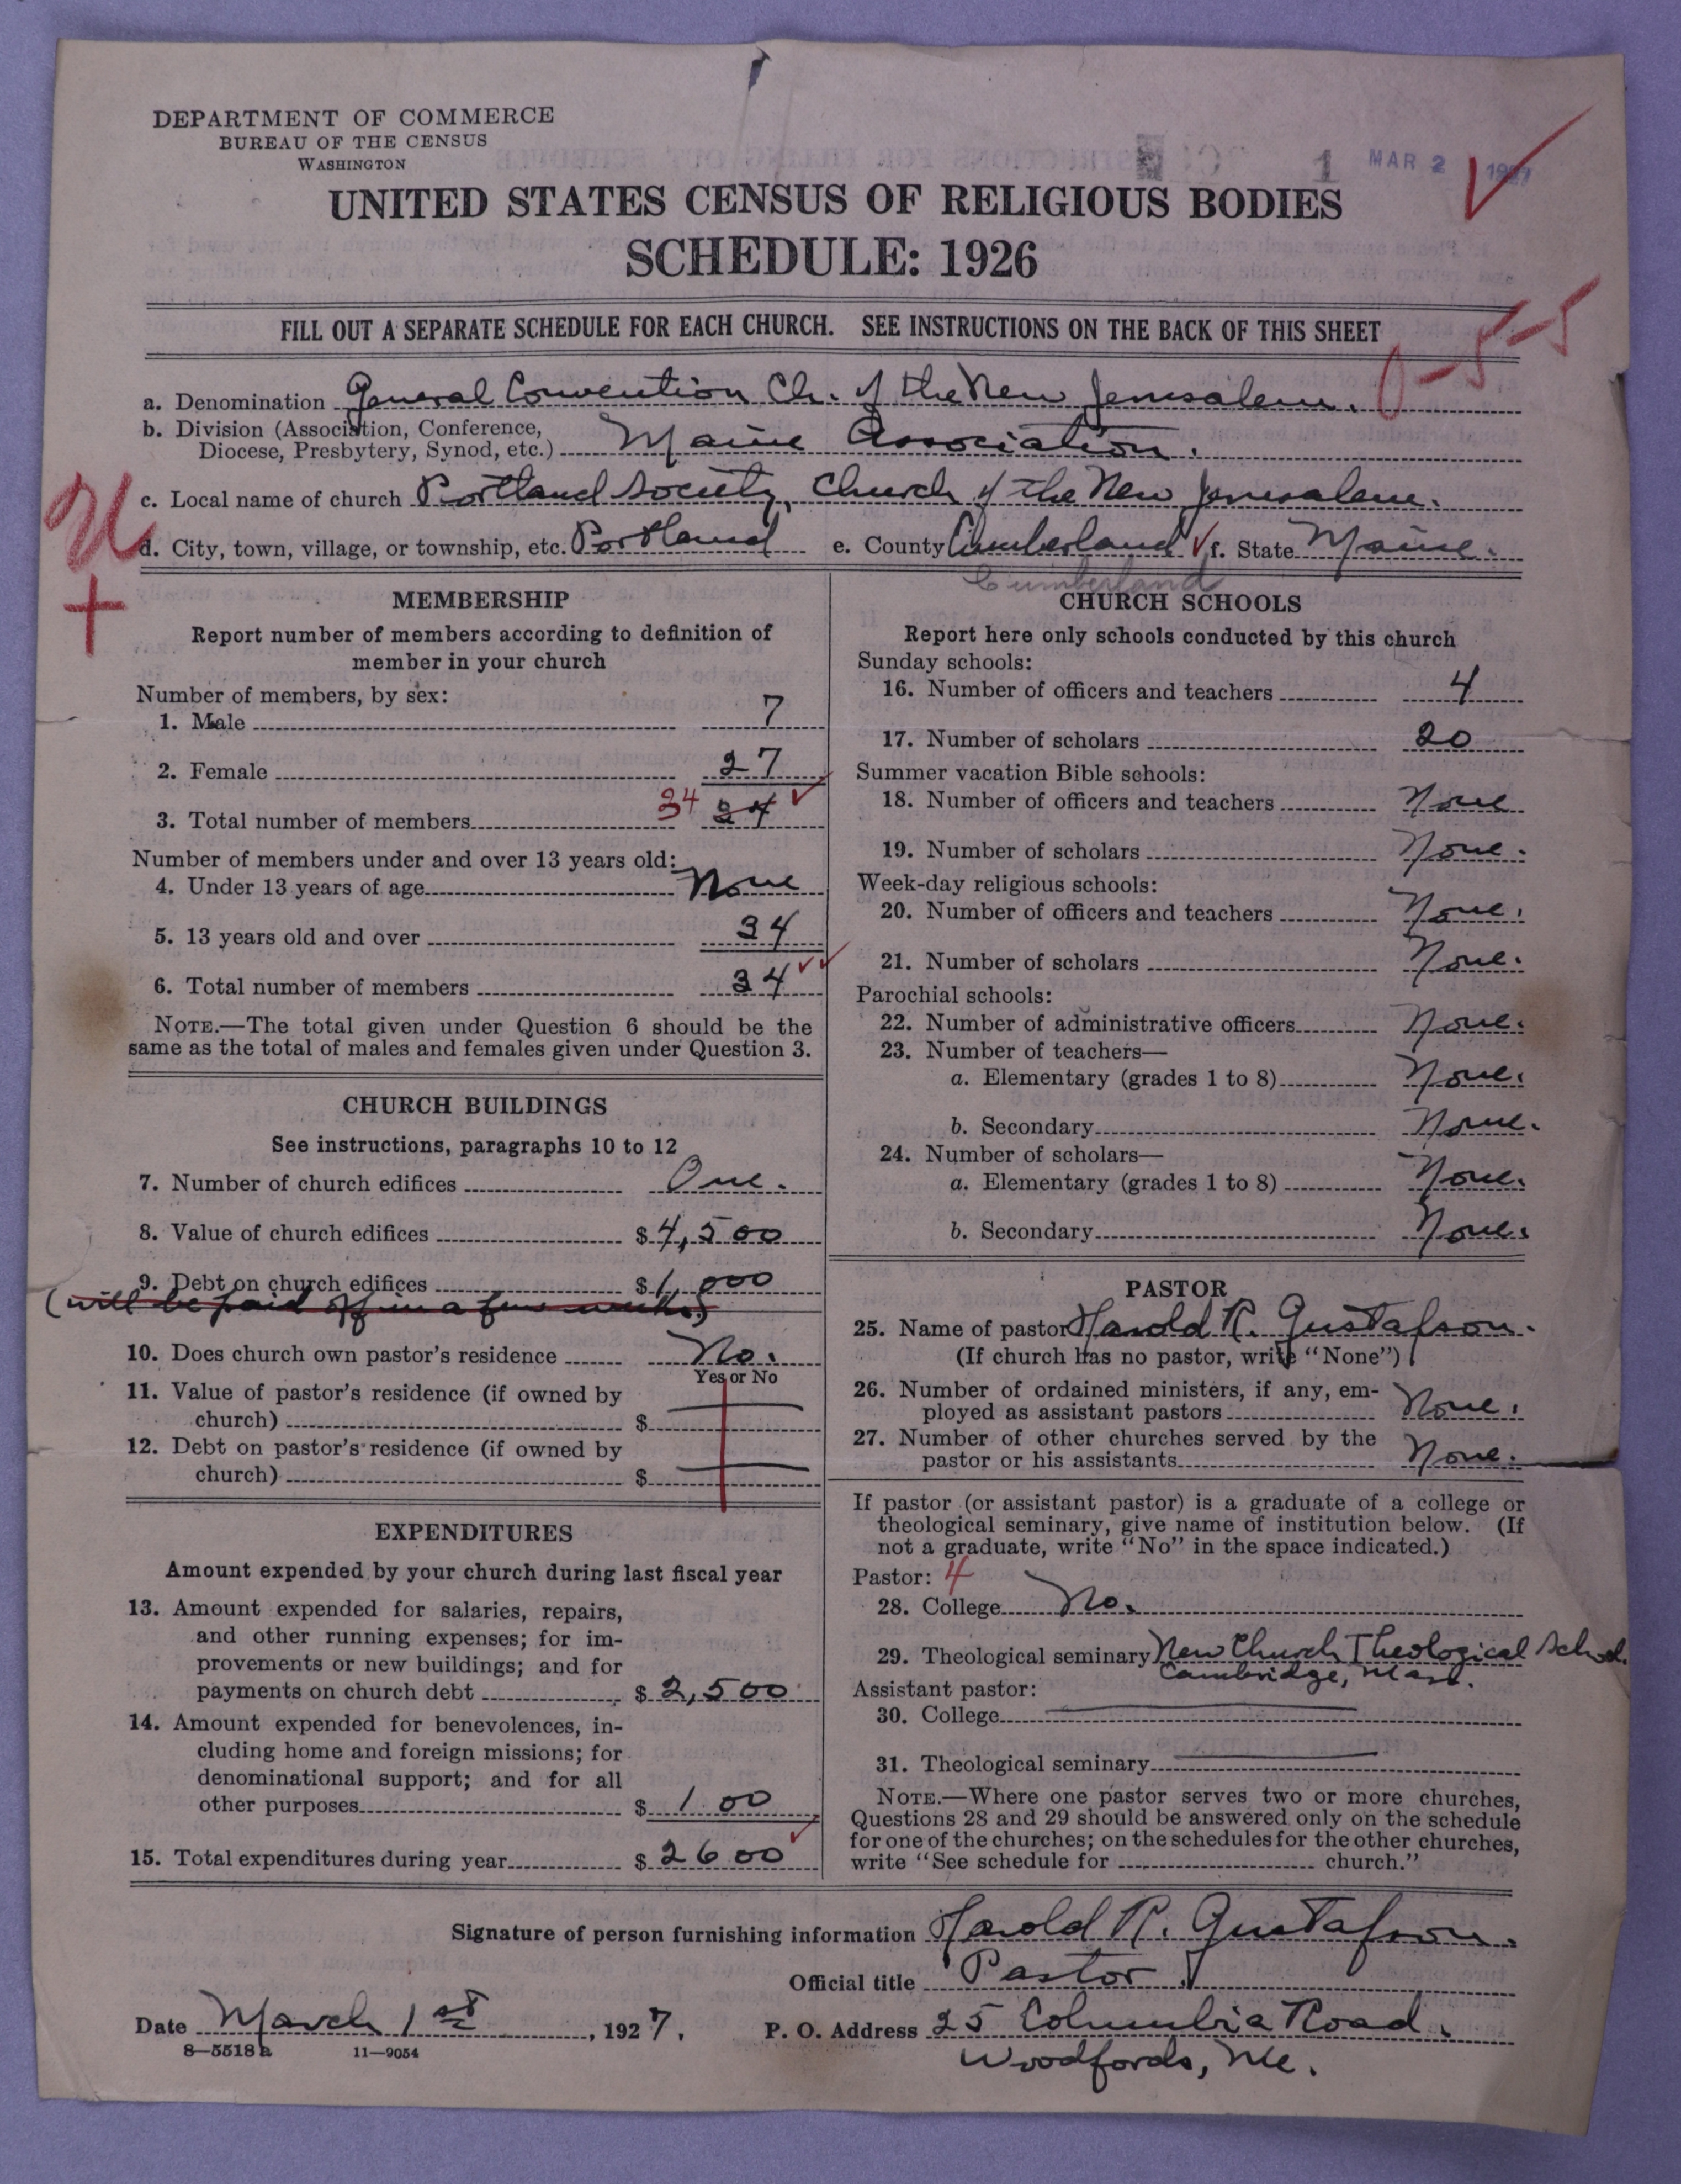 DEPARTMENT OF COMMERCE
BUREAU OF THE CENSUS
WASHINGTON
1 MAR 2 1927
UNITED STATES CENSUS OF RELIGIOUS BODIES
SCHEDULE: 1926
FILL OUT A SEPARATE SCHEDULE FOR EACH CHURCH. SEE INSTRUCTIONS ON THE BACK OF THIS SHEET
0-5-5
a. Denomination General Convention Ch. of the New Jerusalem.
b. Division (Association, Conference, Diocese, Presbytery, Synod, etc.) Maine Association.
c. Local name of church Portland Society, Church of the New Jerusalem.
d. City, town, village, or township, etc. Portland e. County Cumberland f. State Maine.
Cumberland
MEMBERSHIP
Report number of members according to definition of
member in your church
Number of members, by sex:
1. Male 7
2. Female 27
3. Total number of members 34 34
Number of members under and over 13 years old:
4. Under 13 years of age None
5. 13 years old and over 34
6. Total number of members 34
NOTE.—The total given under Question 6 should be the
same as the total of males and females given under Question 3.
CHURCH BUILDINGS
See instructions, paragraphs 10 to 12
7. Number of church edifices One.
8. Value of church edifices $ 4,500
9. Debt on church edifices $ 1,000
(will be paid off in a few weeks.)
10. Does church own pastor's residence No.
Yes or No
11. Value of pastor's residence (if owned by
church) $
12. Debt on pastor's residence (if owned by
church) $
EXPENDITURES
Amount expended by your church during last fiscal year
13. Amount expended for salaries, repairs,
and other running expenses; for im-
provements or new buildings; and for
payments on church debt $ 2,500
14. Amount expended for benevolences, in-
cluding home and foreign missions; for
denominational support; and for all
other purposes $ 100
15. Total expenditures during year $ 2600
CHURCH SCHOOLS
Report here only schools conducted by this church
Sunday schools:
16. Number of officers and teachers 4
17. Number of scholars 20
Summer vacation Bible schools:
18. Number of officers and teachers None
19. Number of scholars None.
Week-day religious schools:
20. Number of officers and teachers None.
21. Number of scholars None.
Parochial schools:
22. Number of administrative officers None.
23. Number of teachers—
a. Elementary (grades 1 to 8) None.
b. Secondary None.
24. Number of scholars—
a. Elementary (grades 1 to 8) None.
b. Secondary None.
PASTOR
25. Name of pastor Harold R. Gustafson.
(If church has no pastor, write "None")
26. Number of ordained ministers, if any, em-
ployed as assistant pastors None.
27. Number of other churches served by the
pastor or his assistants None.
If pastor (or assistant pastor) is a graduate of a college or
theological seminary, give name of institution below. (If
not a graduate, write "No" in the space indicated.)
Pastor: 4
28. College No.
29. Theological seminary New Church Theological School.
Cambridge, Mass.
Assistant pastor:
30. College
31. Theological seminary
NOTE.—Where one pastor serves two or more churches,
Questions 28 and 29 should be answered only on the schedule
for one of the churches; on the schedules for the other churches,
write "See schedule for church."
Signature of person furnishing information Harold R. Gustafson.
Official title Pastor
Date March 1st, 1927. P. O. Address 25 Columbia Road.
8-5518a 11-9054 Woodfords, Me.